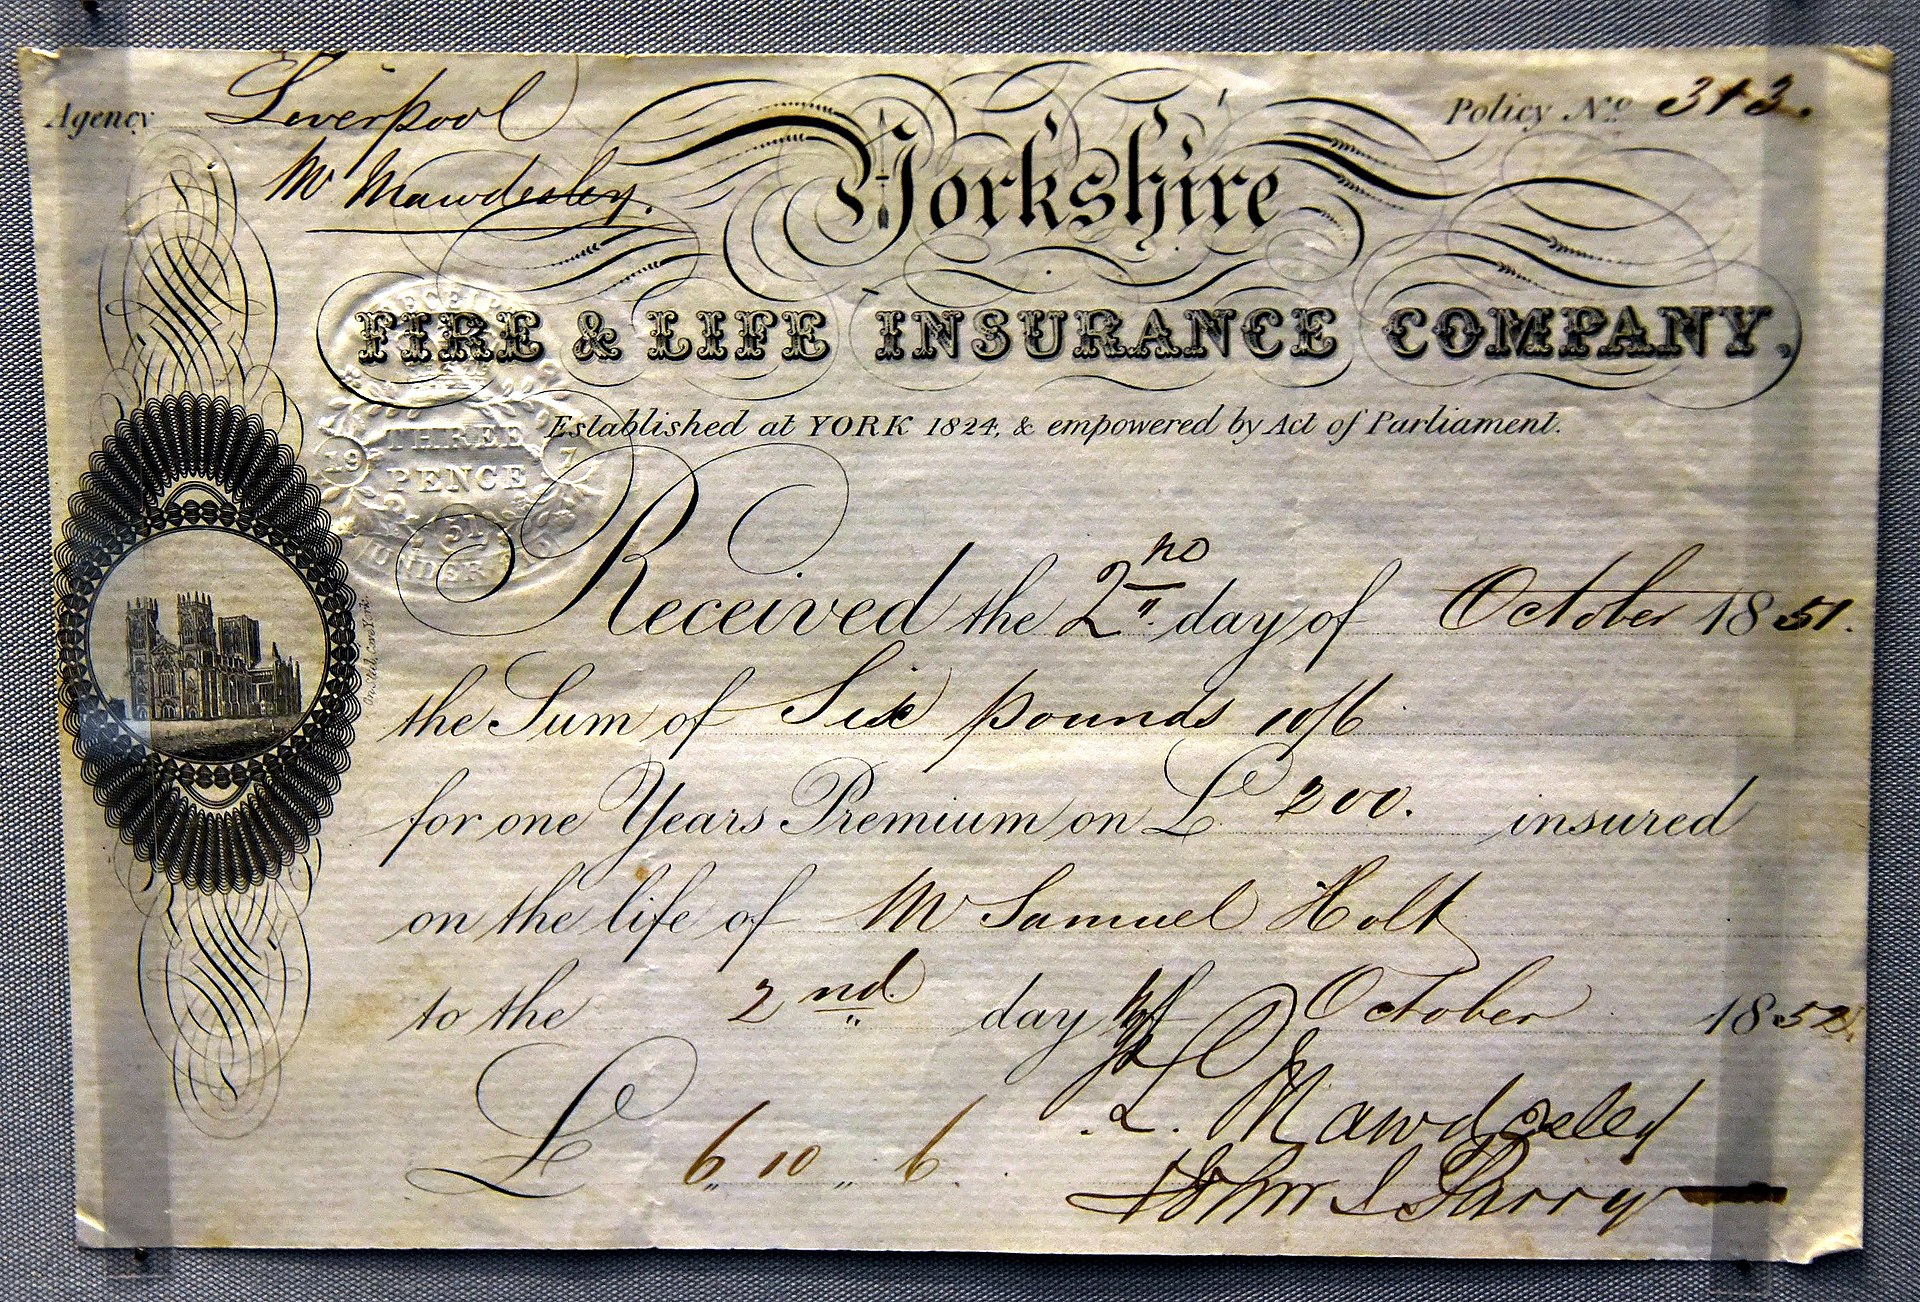 Agency Liverpool
Mr Mawdesley.
Policy No. 343.
Yorkshire
FIRE & LIFE INSURANCE COMPANY,
Established at YORK 1824, & empowered by Act of Parliament.
RECEIPT
THREE
PENCE
19 7
51
UNDER
Received the 2nd day of October 1851.
the Sum of Six pounds 10/6
for one Years Premium on £ 200. insured
on the life of Mr Samuel Holt
to the 2nd day of October 1852.
L. Mawdesley
£ 6 " 10 " 6.
John S Parry